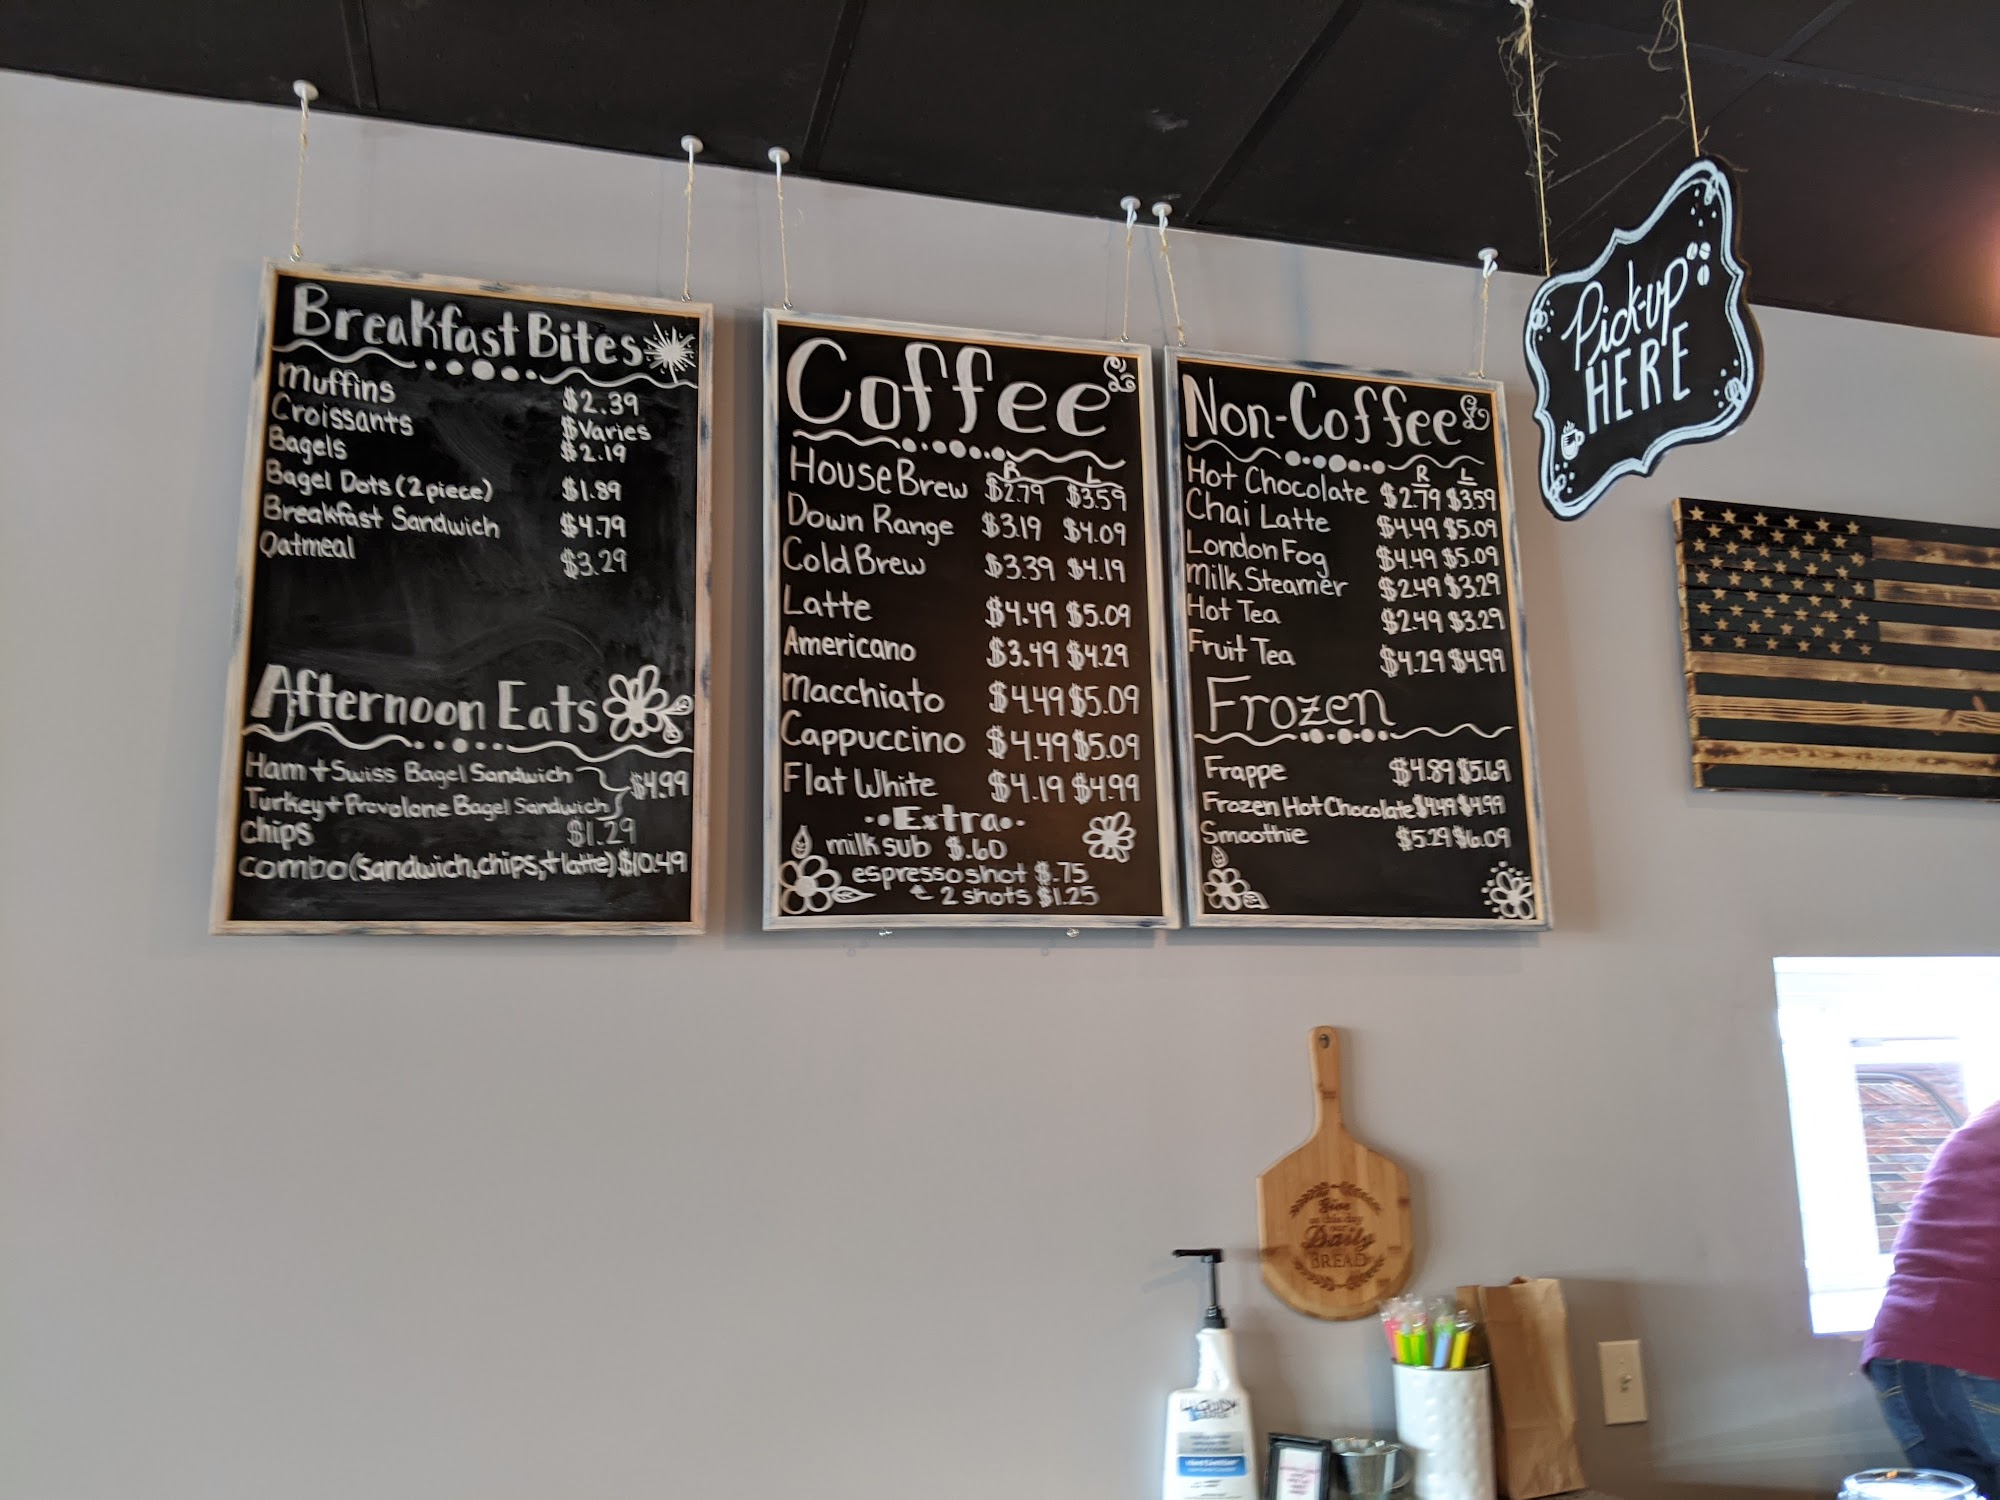 Breakfast Bites
Muffins $2.39
Croissants $Varies
Bagels $2.19
Bagel Dots (2 piece) $1.89
Breakfast Sandwich $4.79
Oatmeal $3.29
Afternoon Eats
Ham + Swiss Bagel Sandwich
$4.99
Turkey + Provolone Bagel Sandwich
Chips $1.29
Combo (Sandwich, chips, + latte) $10.49
Coffee
R L
House Brew $2.79 $3.59
Down Range $3.19 $4.09
Cold Brew $3.39 $4.19
Latte $4.49 $5.09
Americano $3.49 $4.29
Macchiato $4.49 $5.09
Cappuccino $4.49 $5.09
Flat White $4.19 $4.99
Extra
milk sub $.60
espresso shot $.75
2 shots $1.25
Non-Coffee
R L
Hot Chocolate $2.79 $3.59
Chai Latte $4.49 $5.09
London Fog $4.49 $5.09
Milk Steamer $2.49 $3.29
Hot Tea $2.49 $3.29
Fruit Tea $4.29 $4.99
Frozen
Frappe $4.89 $5.69
Frozen Hot Chocolate $4.49 $4.99
Smoothie $5.29 $6.09
Pick-up
HERE
Give
us this day
our
Daily
BREAD
Hand Sanitizer